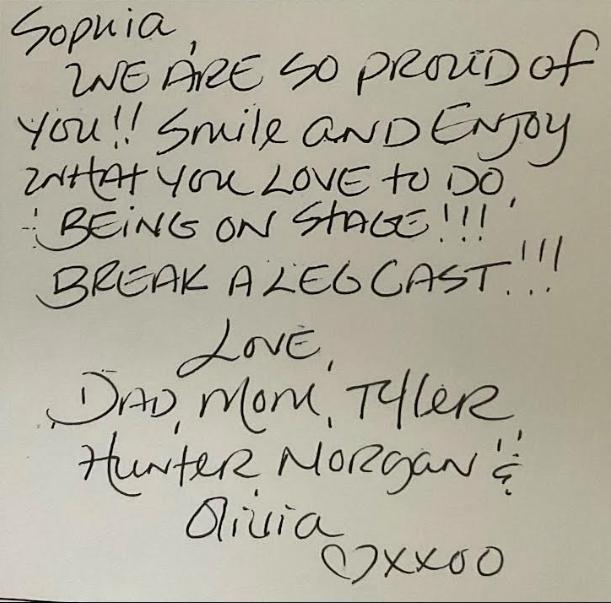 Sophia,
WE ARE SO PROUD OF
YOU!! Smile AND ENJOY
WHAT YOU LOVE TO DO,
BEING ON STAGE!!!
BREAK A LEG CAST!!!
LOVE,
DAD, MOM, TYLER,
HUNTER, MORGAN &
Olivia
♡XXOO